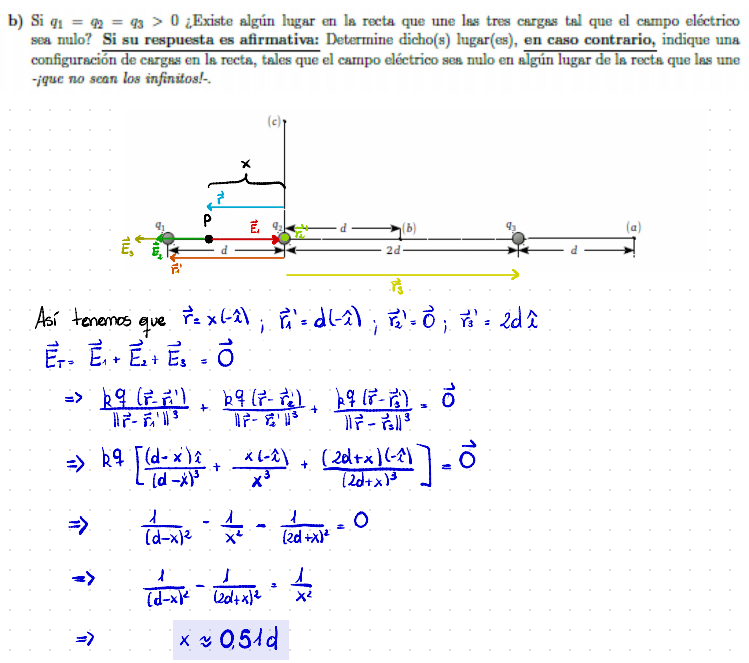 b) Si q₁ = q₂ = q₃ > 0 ¿Existe algún lugar en la recta que une las tres cargas tal que el campo eléctrico
sea nulo? Si su respuesta es afirmativa: Determine dicho(s) lugar(es), en caso contrario, indique una
configuración de cargas en la recta, tales que el campo eléctrico sea nulo en algún lugar de la recta que las une
-¡que no sean los infinitos!-.
(c)
x
r⃗
P
q₁ E⃗₁ q₂ r⃗₂' d (b) q₃ (a)
E⃗₃ E⃗₂ d 2d d
r⃗₁'
r⃗₃'
Así tenemos que r⃗ = x(-î) ; r⃗₁' = d(-î) ; r⃗₂' = 0⃗ ; r⃗₃' = 2d î
E⃗_T = E⃗₁ + E⃗₂ + E⃗₃ = 0⃗
=> kq (r⃗ - r⃗₁')/||r⃗ - r⃗₁'||³ + kq (r⃗ - r⃗₂')/||r⃗ - r⃗₂'||³ + kq (r⃗ - r⃗₃')/||r⃗ - r⃗₃'||³ = 0⃗
=> kq [ (d-x)î/(d-x)³ + x(-î)/x³ + (2d+x)(-î)/(2d+x)³ ] = 0⃗
=> 1/(d-x)² - 1/x² - 1/(2d+x)² = 0
=> 1/(d-x)² - 1/(2d+x)² = 1/x²
=> x ≈ 0,51d